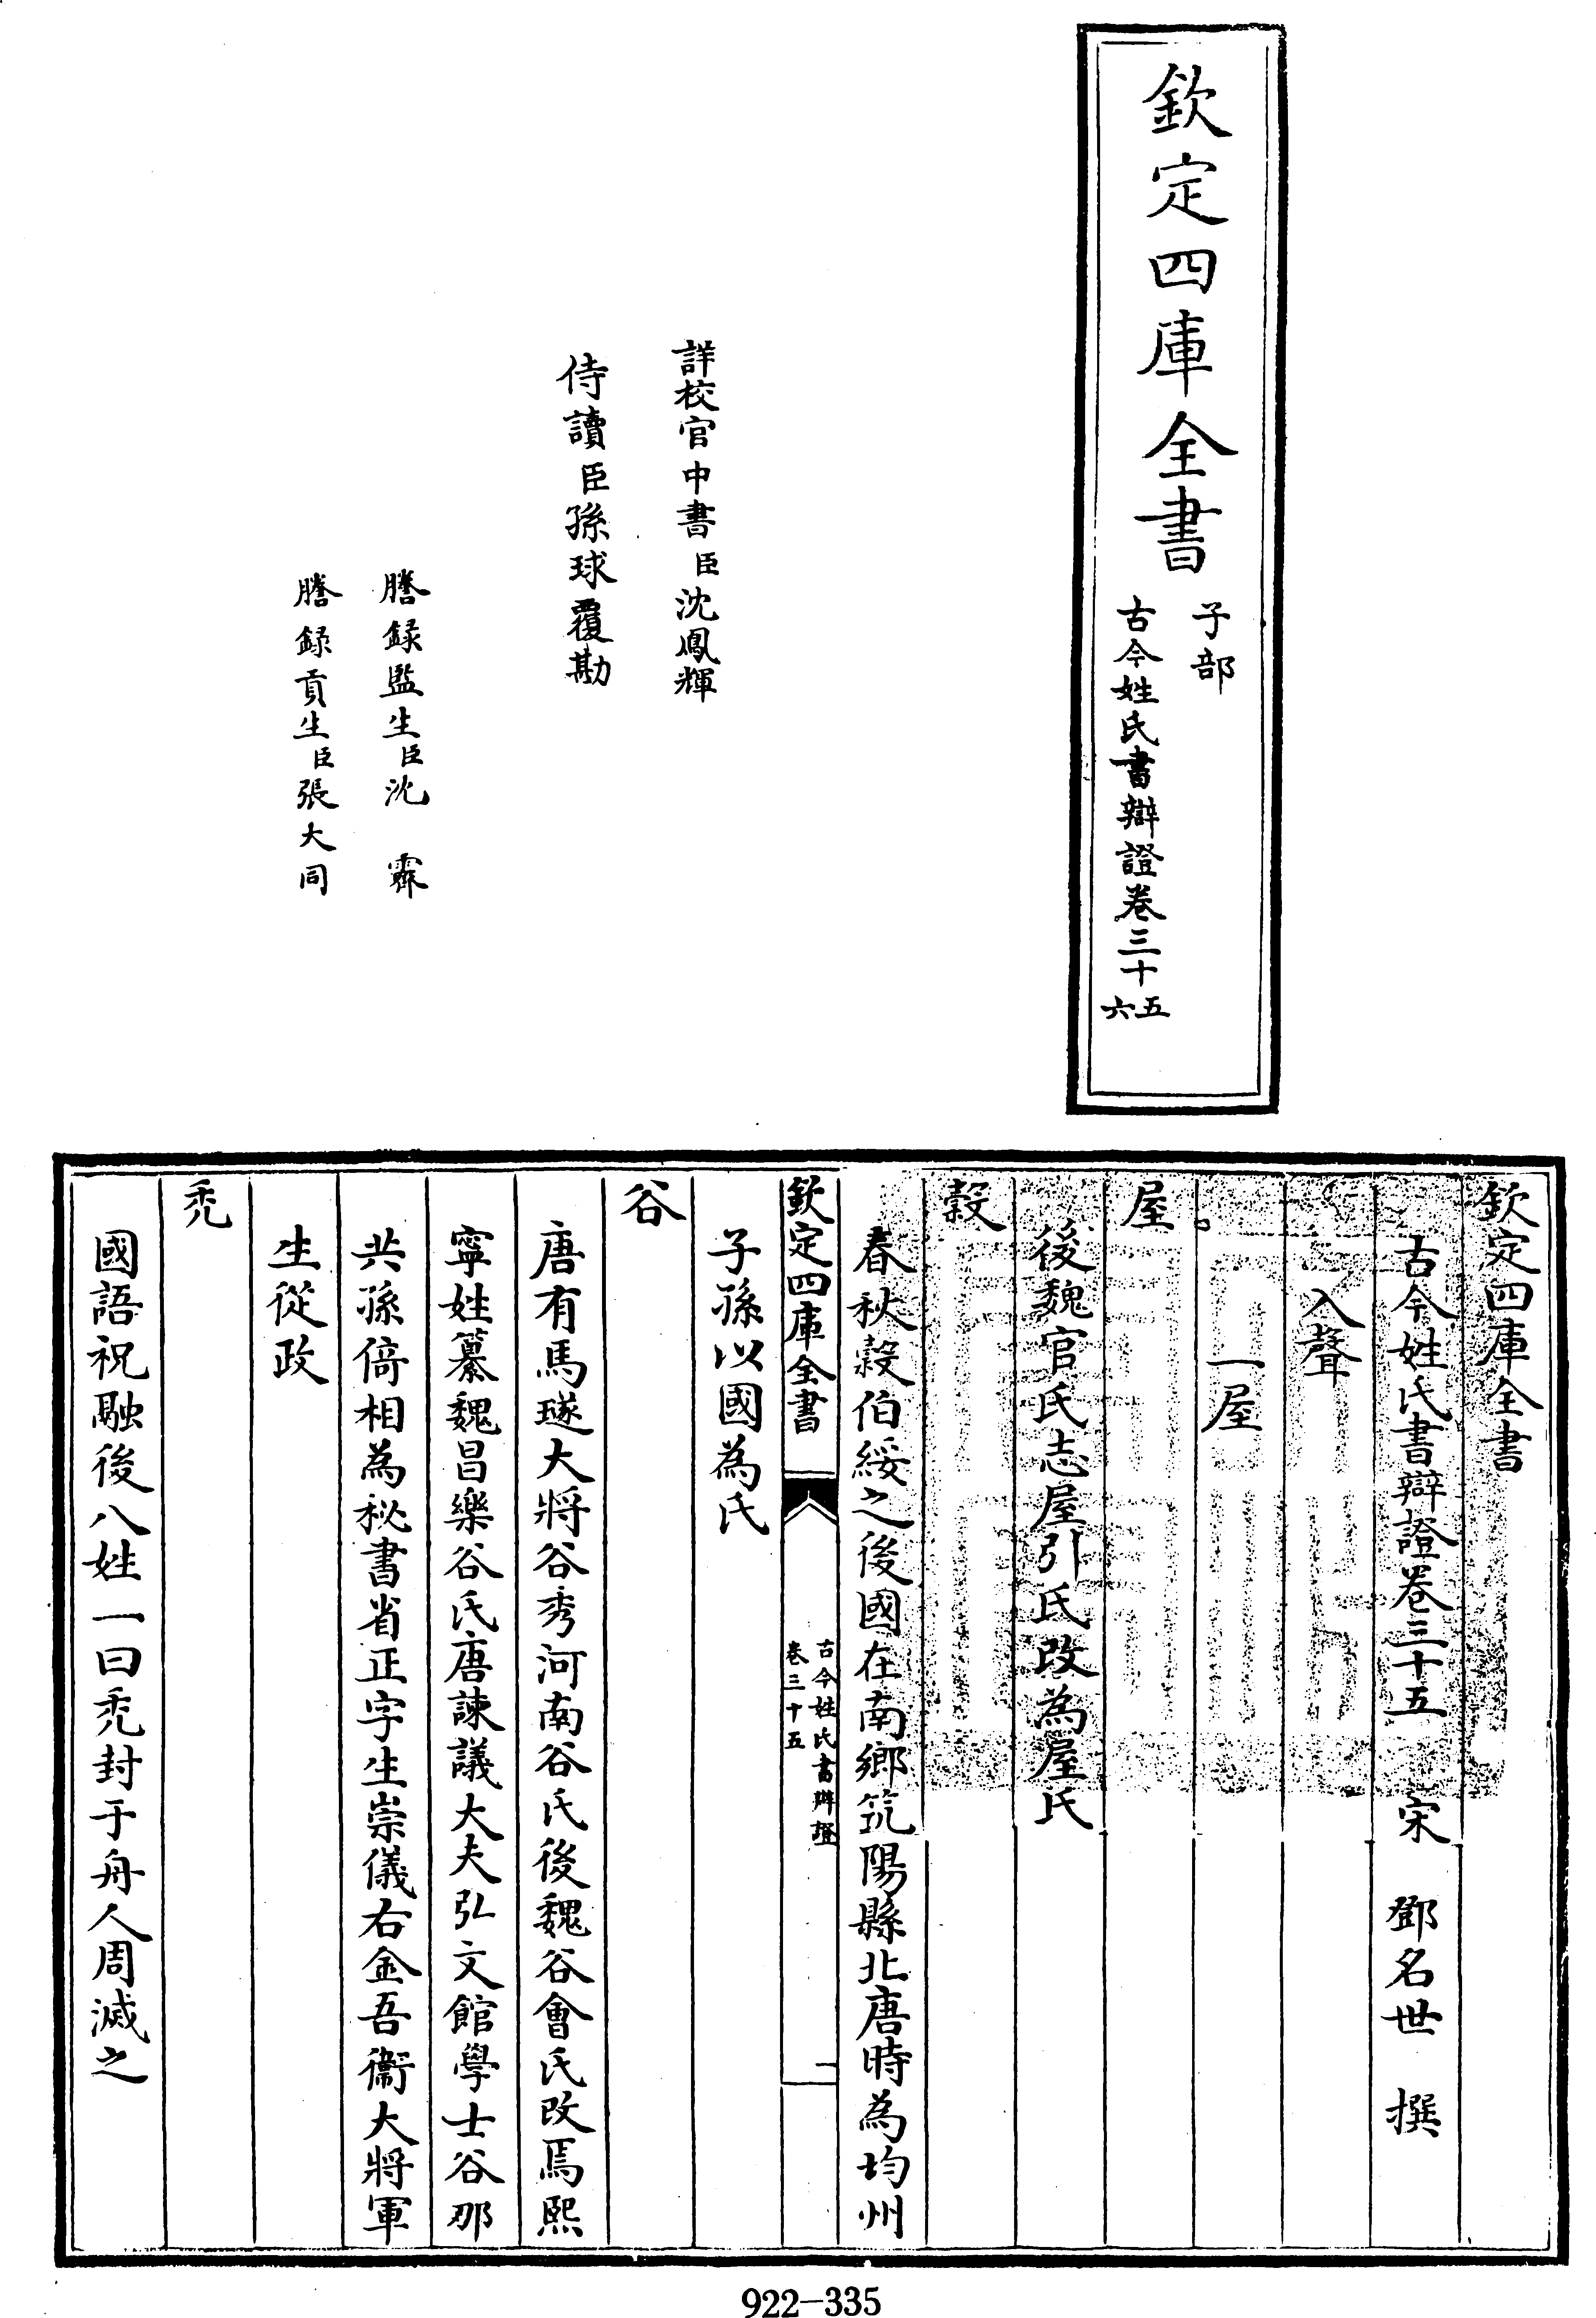 欽定四庫全書
子部
古今姓氏書辯證卷三十五六
詳校官中書臣沈鳳輝
侍讀臣孫球覆勘
謄録監生臣沈霖
謄録貢生臣張大同
欽定四庫全書
古今姓氏書辯證卷三十五 宋 鄧名世 撰
入聲
一屋
屋
後魏官氏志屋引氏改為屋氏
穀
春秋穀伯綏之後國在南鄉筑陽縣北唐時為均州
欽定四庫全書
古今姓氏書辯證
卷三十五
一
子孫以國為氏
谷
唐有馬璲大將谷秀河南谷氏後魏谷會氏改焉熙
寧姓纂魏昌樂谷氏唐諫議大夫弘文館學士谷那
共孫倚相為秘書省正字生崇儀右金吾衞大將軍
生從政
禿
國語祝融後八姓一曰禿封于舟人周滅之
922-335